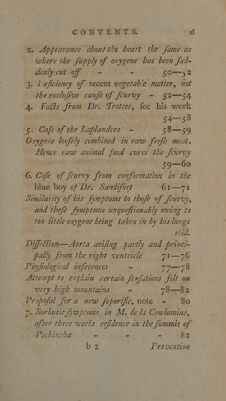 CONTENTS. xi
2. Appearance about the heart the same as
where the supply of oxygene has been sud-
denly cut off - - 50—52
3. Deficiency of recent vegetable matter, not
the exclusive cause of scurvy - 52—54
4. Facts from Dr. Trotter, see his work
54—58
5. Case of the Laplanders - 58—59
Oxygene loosely combined in raw fresh meat.
Hence raw animal food cures the scurvy
59—60
6. Case of scurvy from conformation in the
blue boy of Dr. Sandifort 61—71
Similarity of his symptoms to those of scurvy,
and these symptoms unquestionably owing to
too little oxygene being taken in by his lungs
ibid.
Dissection—Aorta arising partly and princi-
pally from the right ventricle 71—76
Physiological inferences - 77—78
Attempt to explain certain sensations felt on
very high mountains - 78—82
Proposal for a new soporific, note - 80
7. Scorbutic symptoms in M. de la Condamine,
after three weeks residence in the summit of
Pichincha - - - 82
b 2 Prevention